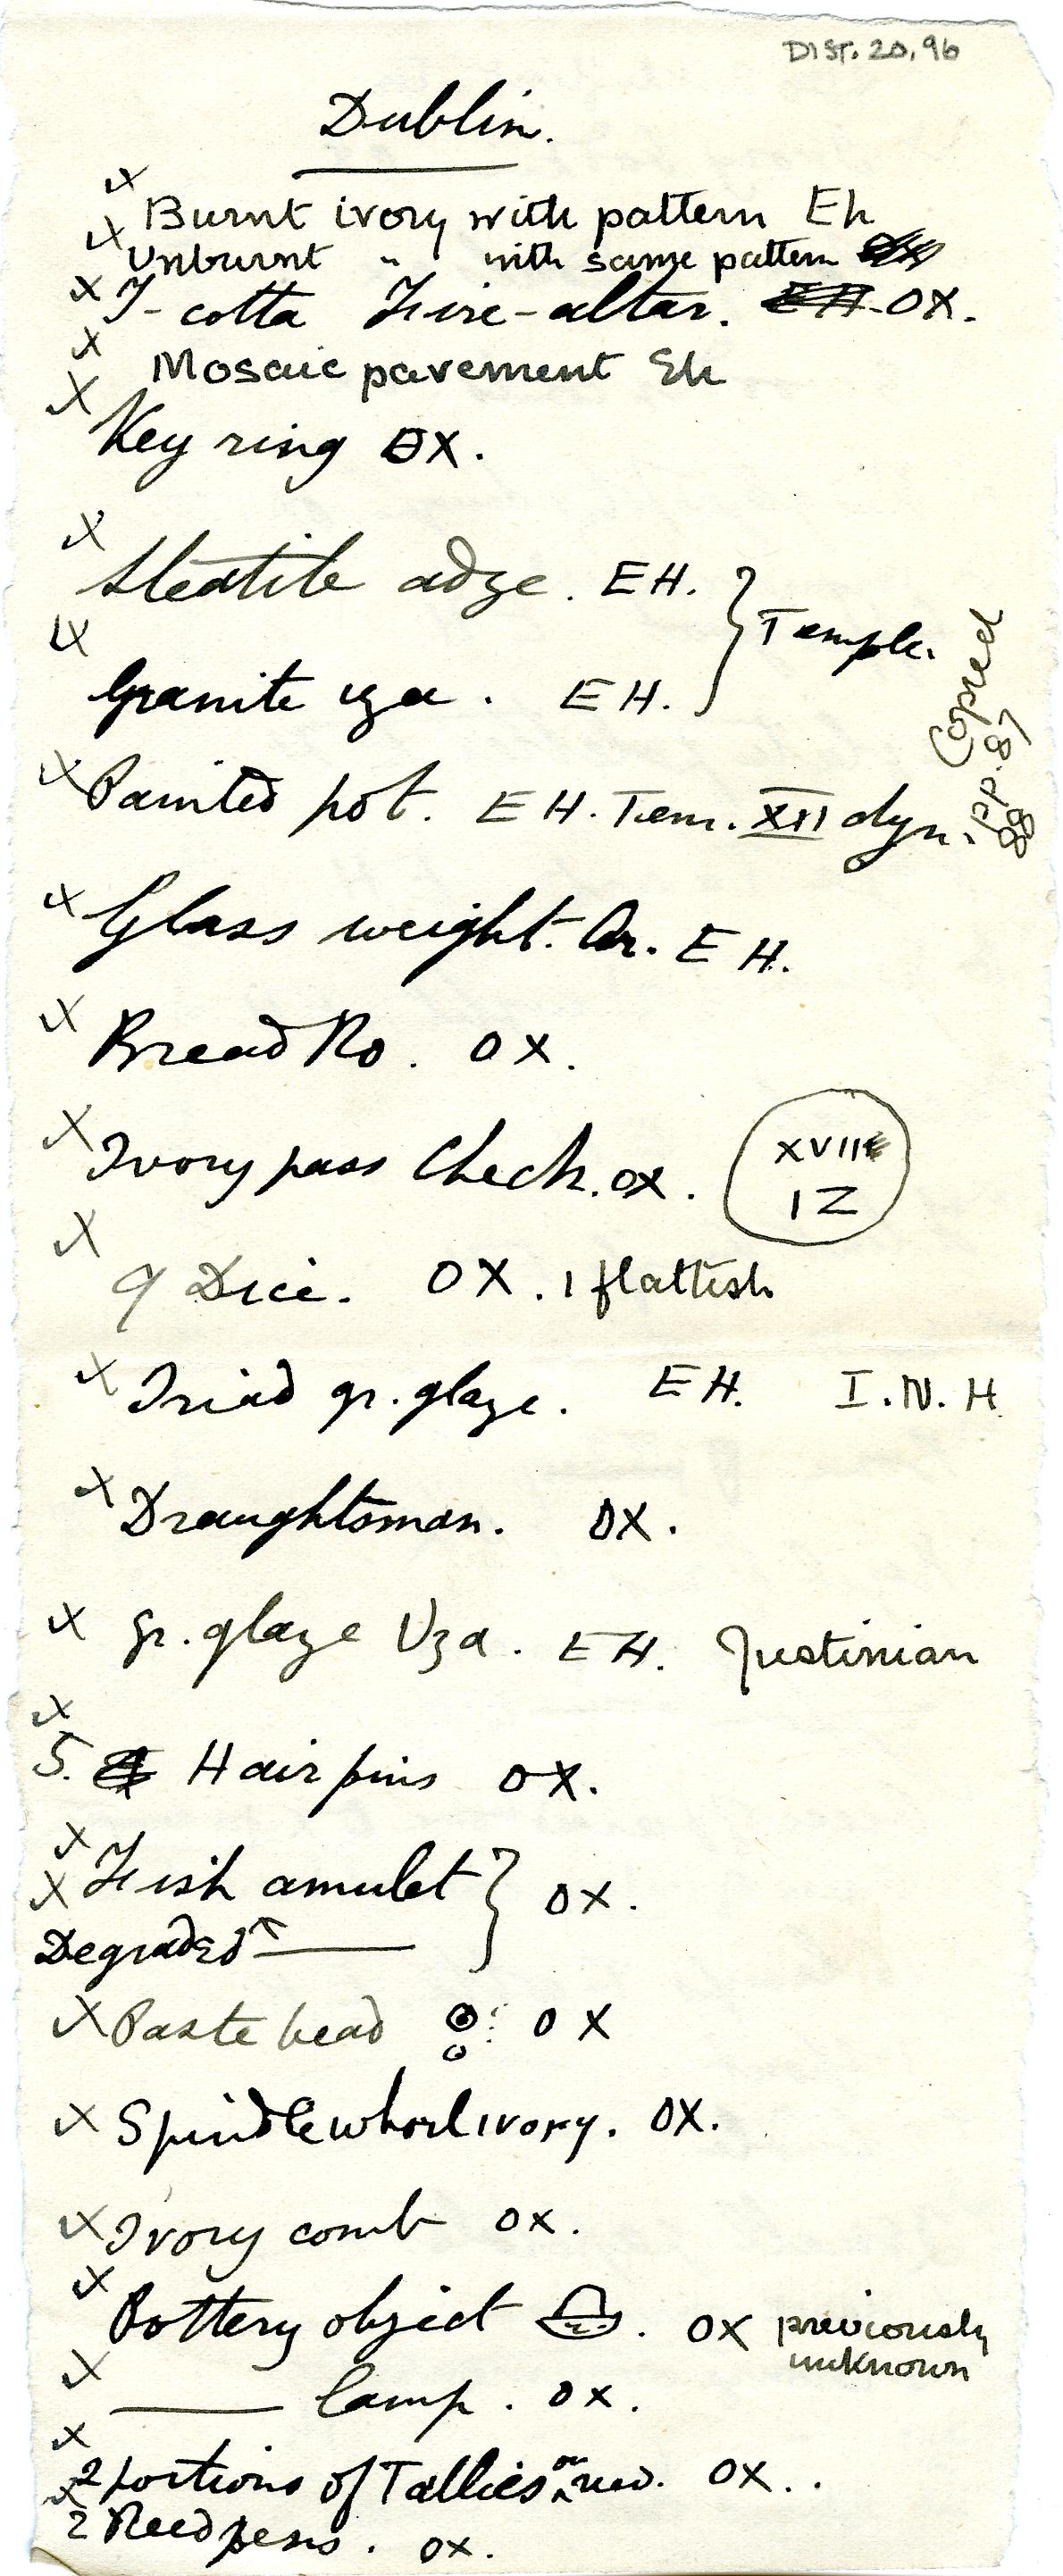 DIST. 20, 96
Dublin.
Burnt ivory with pattern Eh
Unburnt " with same pattern
T-cotta Fire-altar. EH. OX.
Mosaic pavement Eh
Key ring OX.
Steatite adze. EH.
Temple.
Granite uza. EH.
Copied
pp. 87
88
Painted pot. EH. Tem. XII dyn.
Glass weight. Ar. EH.
Bread Ro. OX.
Ivory pass Check. OX.
XVII
IZ
9 Dice. OX. 1 flattish
Triad gr. glaze. EH. I.N.H.
Draughtsman. OX.
Gr. glaze Uza. EH. Justinian
5. Hair pins OX.
Fish amulet
OX.
Degraded
Paste bead OX
Spindlewhorl ivory. OX.
Ivory comb OX.
Pottery object. OX previously
unknown
lamp. OX.
2 portions of Tallies on OX..
2 Reed pens. OX.